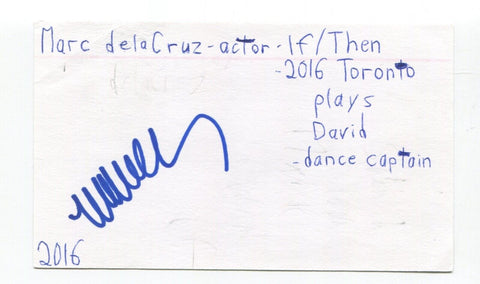 Marc delaCruz-actor-If/Then
-2016 Toronto
plays
David
-dance captain
2016